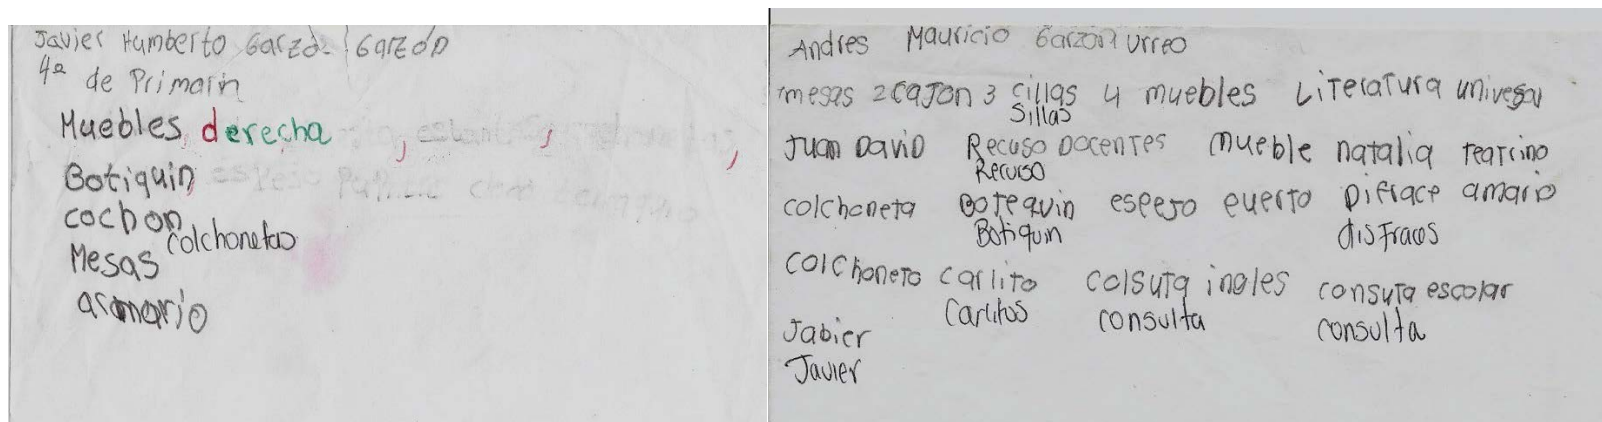 Javier Humberto Garzo- Garzon
4ª de Primaria
Muebles, derecha, estante,
Botiquin,
cochon
colchonetas
Mesas
armario
Andres Mauricio Garzon Urreo
mesas 2 cajon 3 cillas 4 muebles Literatura univesal
Sillas
Juan David Recuso Docentes mueble natalia tearcino
Recurso
colchoneta Botequin espejo euerto Difrace amario
Botiquin disfraces
colchoneta carlito colsuta ingles consuta escolar
Carlitos consulta consulta
Jabier
Javier